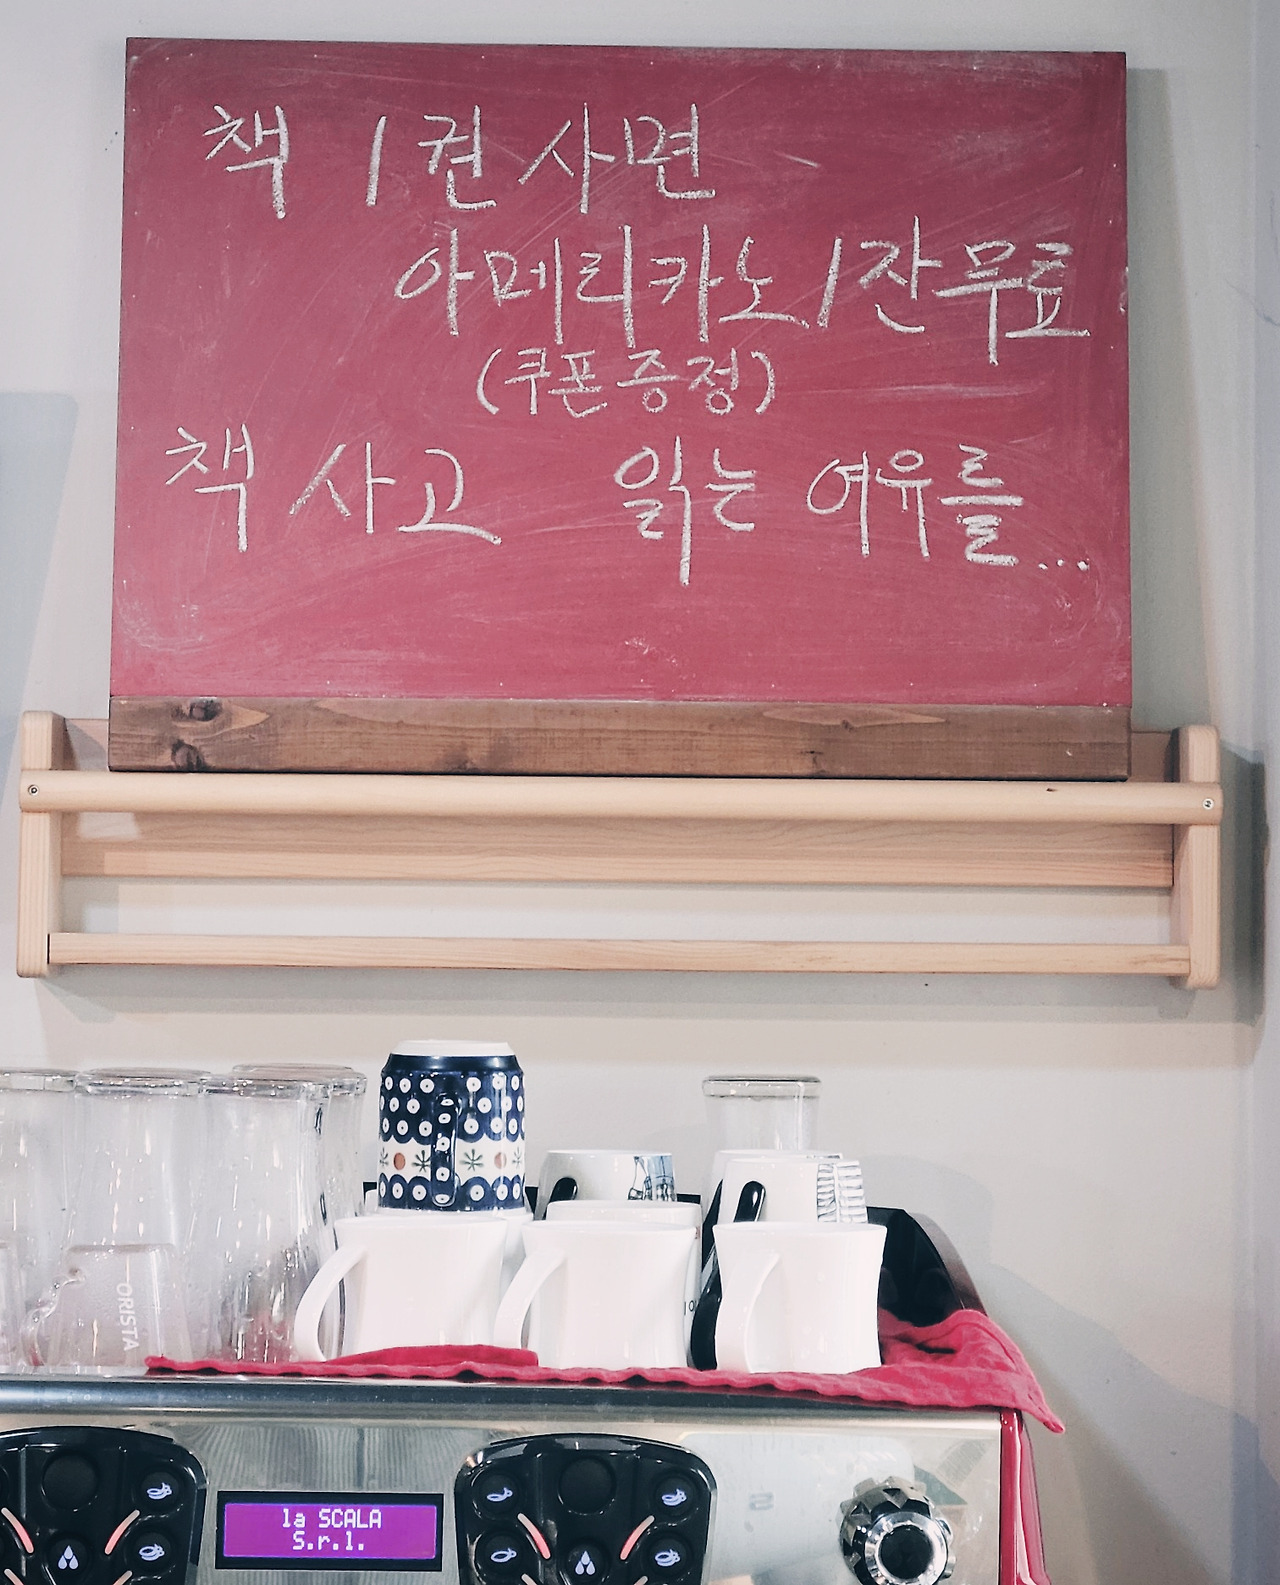 책 1권 사면
아메리카노 1잔 무료
(쿠폰 증정)
책 사고 읽는 여유를...
ORISTA
la SCALA
S.r.l.